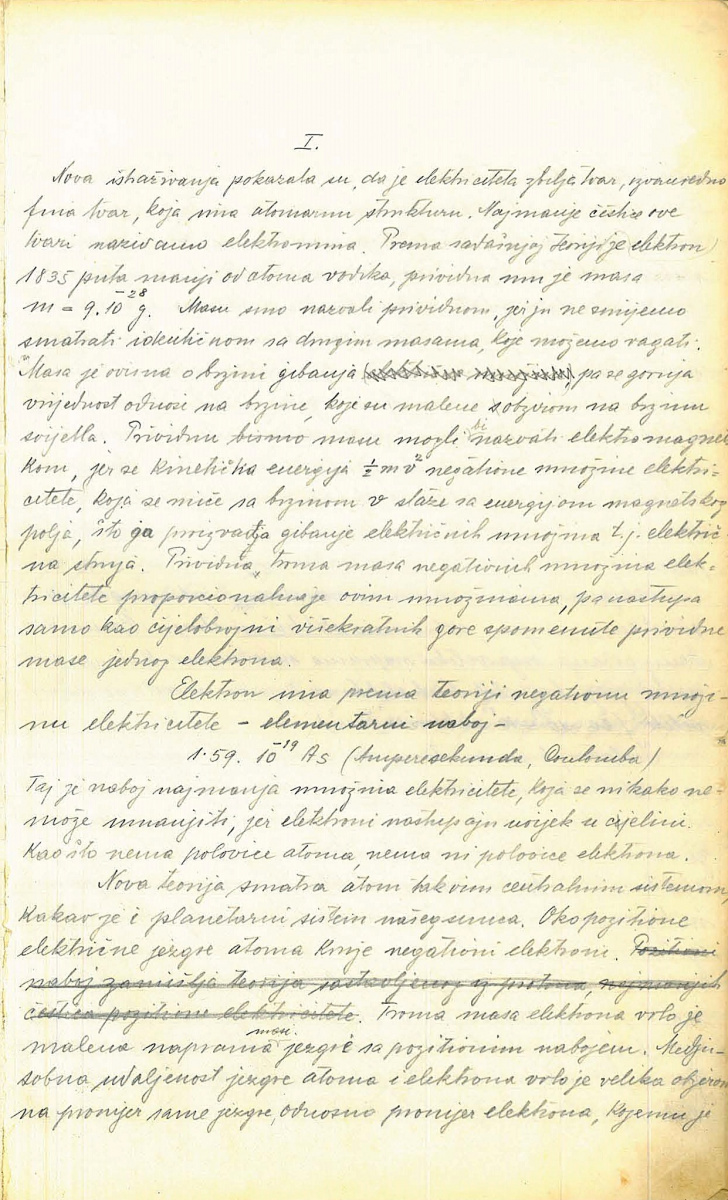 I.
Nova istraživanja pokazala su, da je elektriciteta zbilja tvar, izvanredno
fina tvar, koja ima atomarnu strukturu. Najmanje čestice ove
tvari nazivamo elektronima. Prema sadašnjoj teoriji je elektron
1835 puta manji od atoma vodika, prividna mu je masa
m = 9.10⁻²⁸ g. Masu smo nazvali prividnom, jer ju ne smijemo
smatrati identičnom sa drugim masama, koje možemo vagati.
Masa je ovisna o brzini gibanja pa se gornja
vrijednost odnosi na brzine, koje su malene s obzirom na brzinu
svijetla. Prividnu bismo masu mogli nazvati elektromagnet
kom, jer se kinetička energija ½ m v² negativne množine elektri=
citete, koja se miče sa brzinom v slaže sa energijom magnetskog
polja, što ga proizvadja gibanje električnih množina t. j. električ
na struja. Prividna, troma masa negativnih množina elek-
tricitete proporcionalna je ovim množinama, pa nastupa
samo kao cijelobrojni višekratnik gore spomenute prividne
mase jednog elektrona.
Elektron ima prema teoriji negativnu množi-
nu elektricitete – elementarni naboj –
1·59. 10⁻¹⁹ As (Amperesekunda, Coulomba)
Taj je naboj najmanja množina elektricitete, koja se nikako ne-
može umanjiti, jer elektroni nastupaju uvijek u cijelini.
Kao što nema polovice atoma, nema ni polovice elektrona.
Nova teorija smatra atom takvim centralnim sistemom,
kakav je i planetarni sistem našeg sunca. Oko pozitivne
električne jezgre atoma kruže negativni elektroni. Pozitivni
naboj zamišlja teorija sastavljenog iz protona, najmanjih
čestica pozitivne elektricitete. Troma masa elektrona vrlo je
malena naprama masi jezgre sa pozitivnim nabojem. Medju-
sobna udaljenost jezgre atoma i elektrona vrlo je velika obzirom
na promjer same jezgre, odnosno promjer elektrona, kojemu je